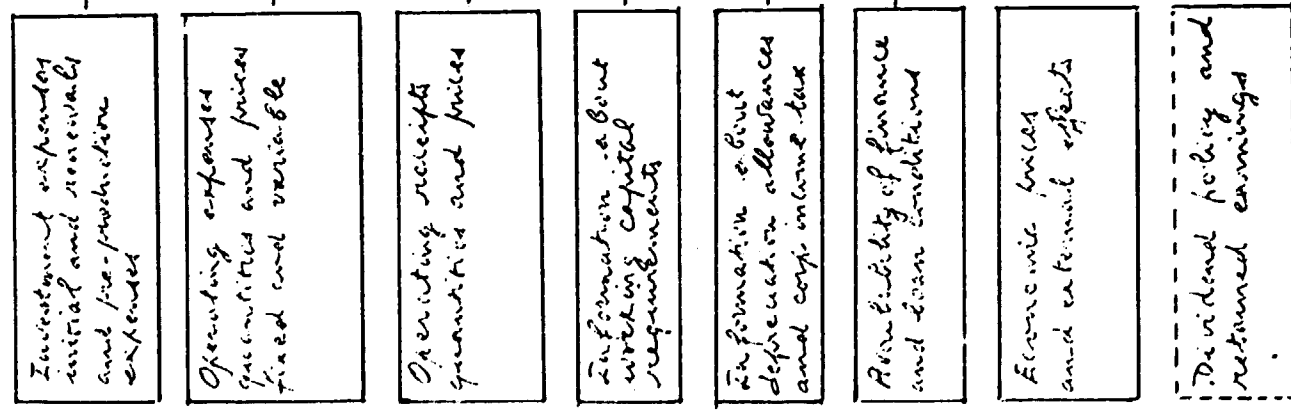 Investment expenses
initial and renewals
and pre-production
expenses
Operating expenses
quantities and prices
fixed and variable
Operating receipts
quantities and prices
Information about
working capital
requirements
Information about
depreciation allowances
and corp income tax
Availability of finance
and loan conditions
Economic prices
and external effects
Dividend policy and
retained earnings